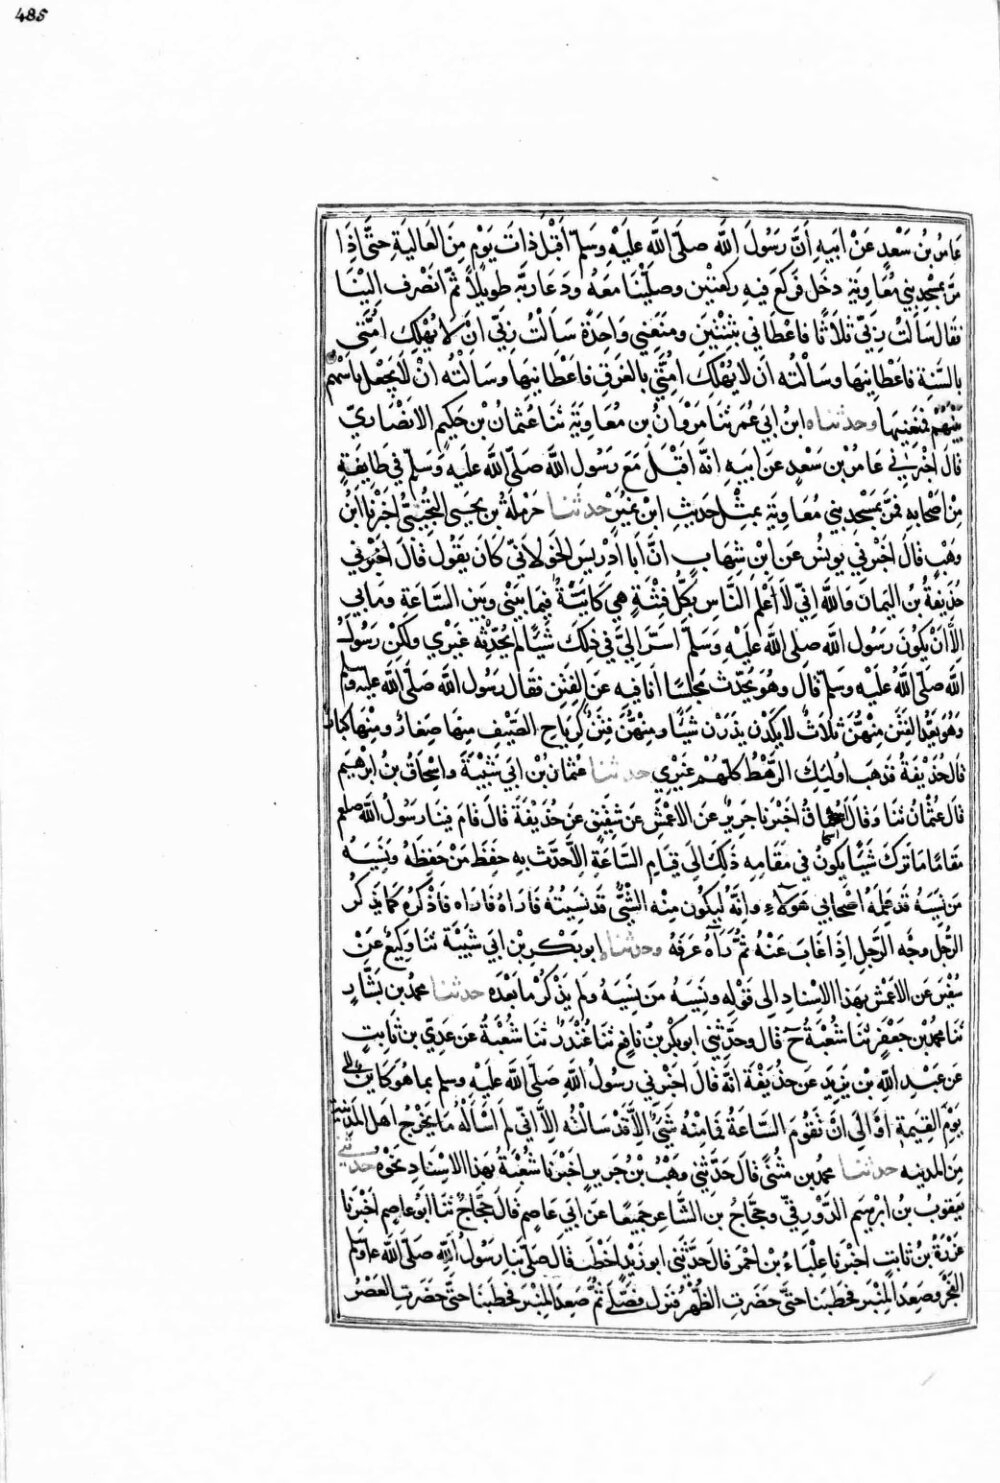 485
عامر بن سَعْدٍ عَنْ اَبيهِ اَنَّ رَسُولَ اللَّه صلى اللَّه عليْه وسَلم اَقْبَلَ ذاتَ يَوْمٍ مِنَ العَاليةِ حتَّى اِذَا
مَرّ بمسْجِدِ بني مُعَاوِيَةِ دخَل فرَكعَ فيهِ ركعَتَيْن وصلّيْنَا مَعَهُ ودَعَا ربّهُ طويلاً ثمّ انْصَرف اِليْنَا
فقَال سَاَلتُ رَبّي ثلاَثًا فاعْطَاني ثِنْتَيْن ومنَعَني وَاحِدَة سَاَلْتُ رَبّي اَنْ لا يُهْلِك اُمّتي
بالسَّنةِ فاَعْطَانِيهَا وسَاَلْتُه اَن لا يُهْلِكَ اُمّتي بالغَرَقِ فاَعْطَانِيهَا وسَاَلْتُه اَنْ لا يَجْعَل باَسَهُم
بَيْنَهُمْ فمَنَعَنِيهَا وحدثناه ابنُ اَبي عُمَر ثنَا مَرْوَانُ بن مُعَاوِيَة ثنَا عُثمَانُ بْن حَكِيمٍ الاَنصَاريّ
قال اَخْبرَني عَامِرُ بن سَعْدٍ عَن اَبيهِ انّهُ اَقبَلَ مَعَ رَسُول اللَّه صلّى اللَّه عليه وسَلّم في طَايفَةٍ
مِنْ اَصْحَابهِ فمَرّ بمَسْجدِ بني مُعَاوِيَة بمثْل حَديثِ ابْن نمَيْرٍ حدثنا حَرْمَلَةُ بن يحيى التّجيْبيُّ اَخْبَرنَا ابنُ
وهَبْ قالَ اَخْبَرني يُونسُ عَن ابْن شهَابٍ انَّ اَبَا اِدْرِيسَ الخَوْلاَنيّ كانَ يقُول قَالَ
حُذيفَةُ بْن اليَمَان وَاللَّه اِنّي لاَ اَعْلمُ النَّاسِ بكُلّ فِتْنَةٍ هيَ كَايِنَةٌ فِيمَا بَيْنِي وبَيْنَ السَّاعَةِ ومَا بي
اِلاَّ اَنْ يكُونَ رسُول اللَّه صلى اللَّه عليْهِ وَسَلم اَسَرَّ اِليَّ في ذلِكَ شَيْئًا لم يُحَدِّثْه غَيْري ولكِنْ رَسُولَ
اللَّه صَلى اللَّهُ عَلَيْهِ وسَلم قالَ وهُوَ يُحَدّث مَجْلِسًا اَنَا فِيهِ عَن الفِتَنِ فقَال رسُول اللَّه صَلّى اللَّه عليه وسلم
وَهُوَ يَعُدّ الفِتَنَ مِنْهُنَّ ثَلاَثٌ لا يكَدْنَ يذَرْنَ شيْئًا ومِنْهُنَّ فِتَنٌ كَرِيَاحِ الصَيْفِ مِنهَا صِغَارٌ ومِنْهَا كبَارٌ
قالَ حُذَيْفَةُ فذَهَبَ اُوليِكَ الرَّهْطُ كلّهُمْ غَيْرِي حدثنا عُثمانُ بْن اَبي شَيْبَةَ واِسْحَاقُ بن ابْرهيم
قالَ عُثْمانُ ثنَا وَقَالَ اسحَاقُ اَخْبَرنَا جَرِيرٌ عَن الاَعْمَش عَن شَقِيق عَن حُذَيْفَة قالَ قَامَ فينَا رسُولُ اللَّه صلعم
مَقَامًا مَا ترَكَ شَيْئًا يَكُونُ في مقَامِهِ ذَلِكَ اِلَى قِيَامِ السَّاعَةِ اِلاَّ حَدّث بهِ حفِظَ مَنْ حَفِظَهُ ونَسِيَهُ
مَن نَسِيَهُ قَد عَلِمَهُ اَصْحَابي هَؤُلاَءِ وانّهُ لَيَكُون مِنْه الشّيُّ قد نَسِيتُهُ فاَراهُ فاَذْكُرُه كمَا يَذْكُر
الرَّجُل وَجْه الرَّجُلِ اِذَا غَابَ عَنْهُ ثُمّ رَآهُ عرَفهُ وحدثناه ابو بَكْر بْن اَبي شَيْبَة ثنَا وَكِيعٌ عَنْ
سُفْيَن عَن الاَعْمَش بهَذا الاِسْنَادِ اِلى قَوْلهِ ونَسِيَهُ مَن نَسِيَهُ ولَم يَذْكُرْ مَا بَعْدَه حدثنا محمدُ بن بَشَّارٍ
ثنَا محمدُ بْن جَعْفَرٍ ثنَا شُعْبَةُ ح قالَ وحَدّثَني ابوبكْر بْن نافعٍ ثنَا غُنْدَرٌ ثنَا شُعْبَةُ عَن عَدِيّ بن ثَابِتٍ
عَن عَبْدِ اللَّهِ بْن يَزِيدَ عَن حُذَيْفَةَ انّهُ قالَ اَخْبَرني رسُولُ اللَّهِ صَلّى اللَّهُ عَلَيْهِ وسلّم بمَا هُوَ كايِنٌ الى
يَوْمِ القِيَمةِ اَوْ اِلَى اَنْ تَقُومَ السَّاعَةُ فمَا مِنْهُ شَيٌ اِلاَّ قَدْ سَاَلْتُهُ اِلاَّ اَنّي لَم اَسْاَلهُ مَا يُخْرجُ اَهل المَدينة
مِنَ المدِينه حدثنا محمدُ بن مثنًّى قالَ حَدَّثني وهْبُ بْن جَرير اَخْبَرنَا شُعْبَةُ بهَذا الاِسْنَادِ نحوَه حدثني
يَعقُوبُ بنُ ابرهِيم الدَّوْرقيّ وحَجَّاجُ بن الشَّاعِر جَمِيعًا عَن اَبي عَاصِم قالَ حَجَّاجٌ ثنَا ابُو عاصِم اَخْبَرنَا
عَزْرَةُ بن ثابتٍ اَخْبَرنَا عِلْبَاءُ بْن احْمَرَ قالَ حَدّثَني ابو زَيْدٍ اَخْطَب قالَ صلّى بنَا رسُولُ اللَّهِ صَلّى اللَّهُ عليه وسَلم
الفَجْرَ وصَعِدَ المِنْبَر فخَطَبَنَا حتَّى حَضَرَتِ الظّهْرُ فنَزَل فصَلّى ثمّ صَعِدَ المِنْبَر فخطَبَنَا حتّى حَضَرَتِ العَصْرُ